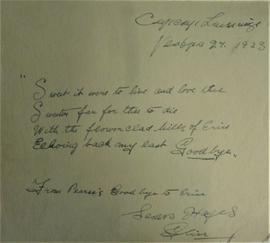 27. 1923
Sweet it were to live and love thee
Sweeter far for thee to die
With the flowerclad hills of Erin
Echoing back my last Goodbye.
From Pearse's Goodbye to Erin
Hayes